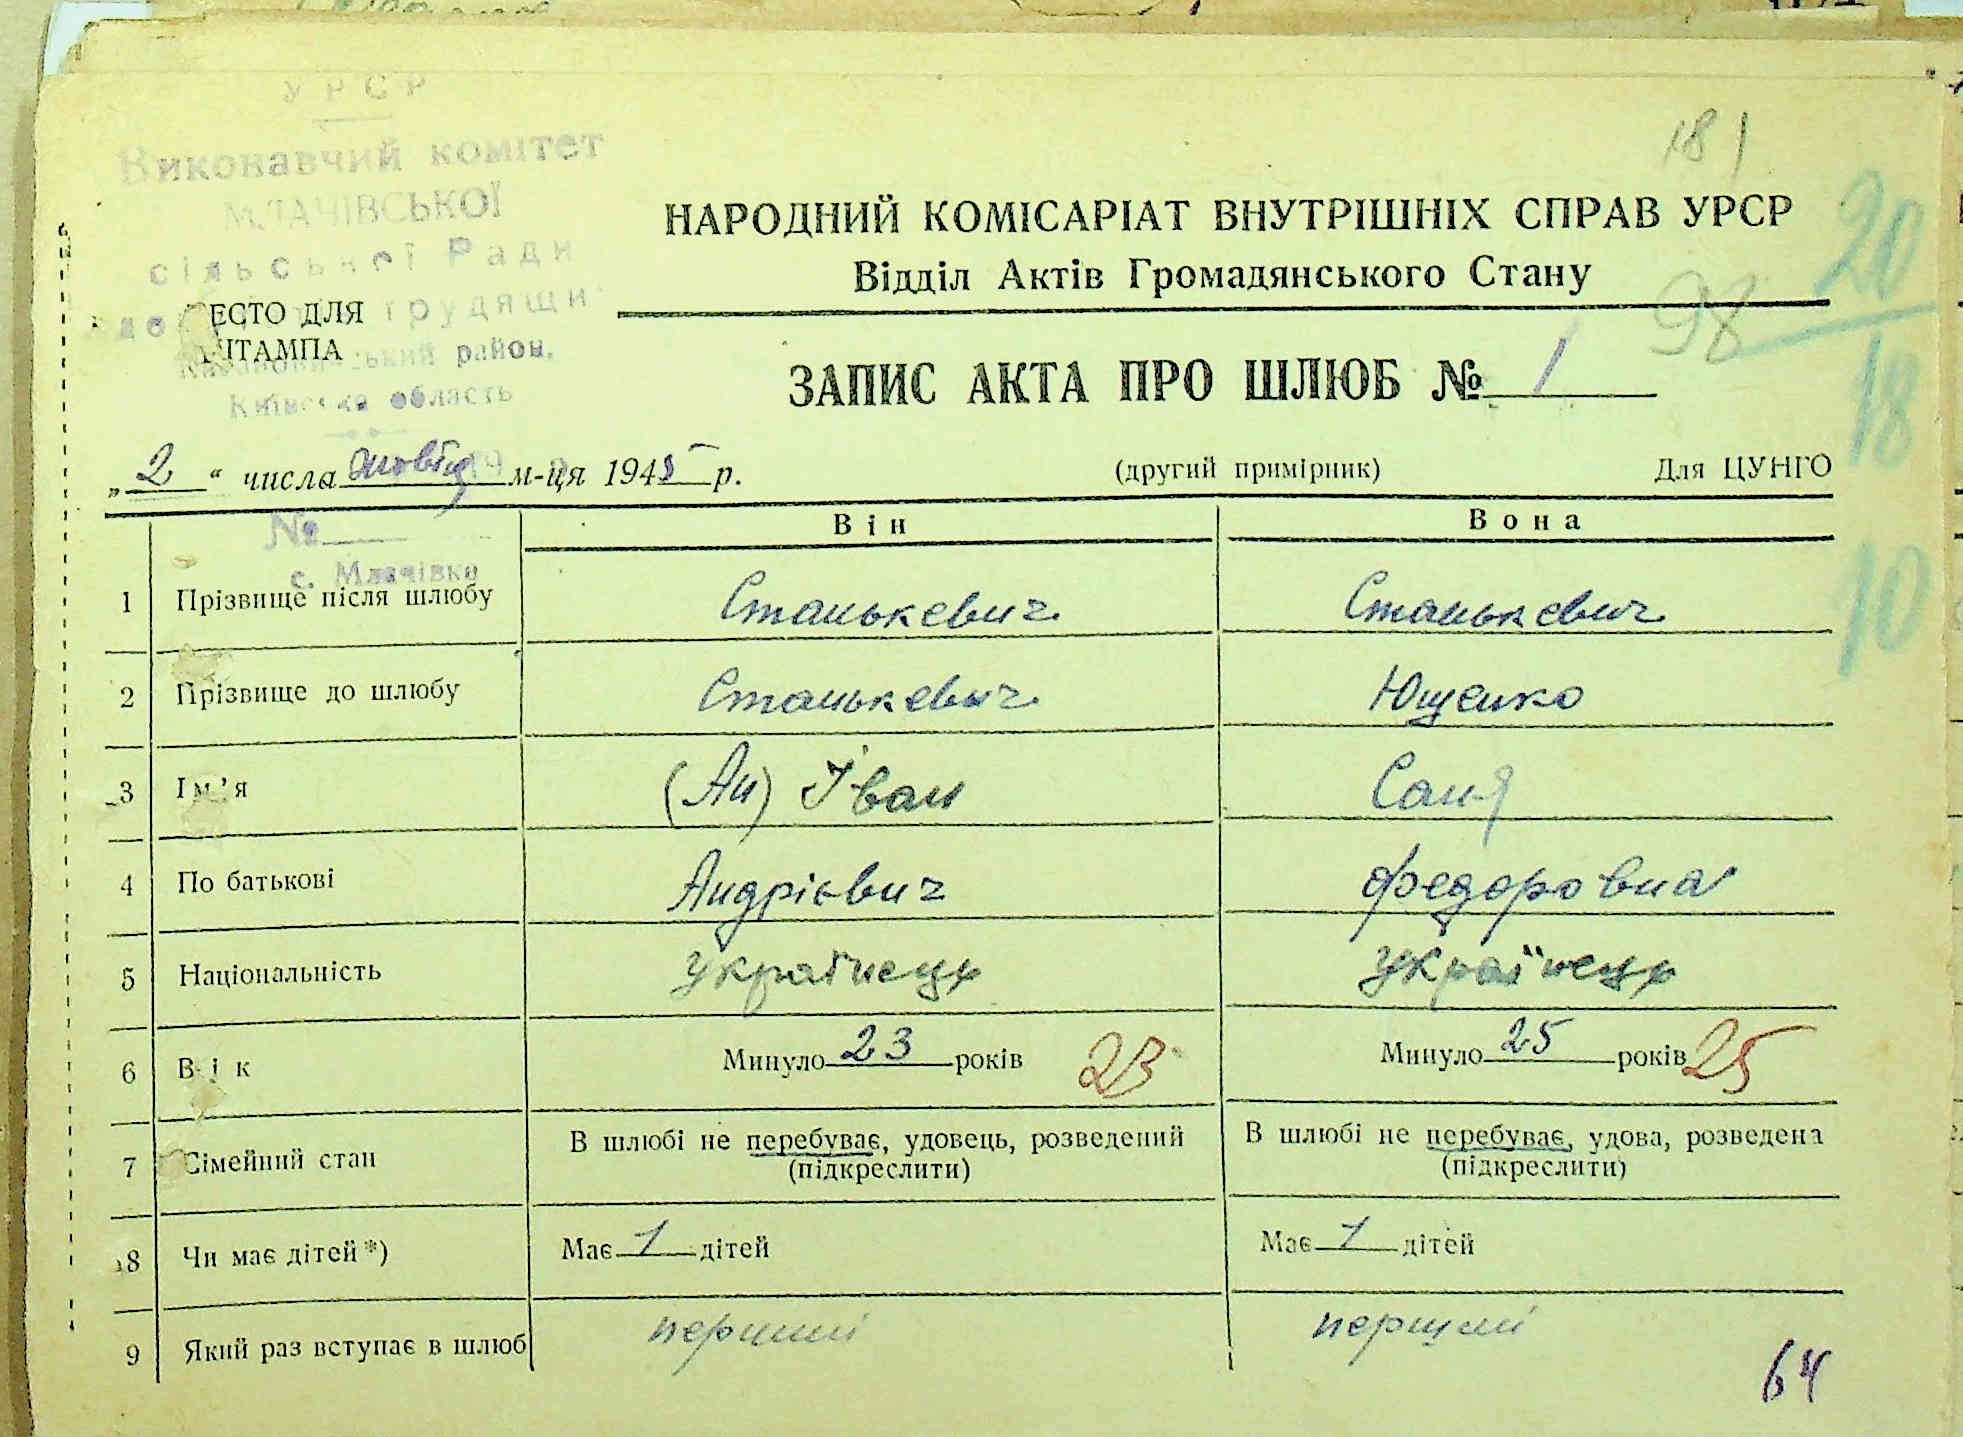 УРСР
Виконавчий комітет
МЛАЧІВСЬКОЇ
сільської Ради
трудящих
район,
Київська область
МЕСТО ДЛЯ
ШТАМПА
181
НАРОДНИЙ КОМІСАРІАТ ВНУТРІШНІХ СПРАВ УРСР
Відділ Актів Громадянського Стану
98
20
18
10
ЗАПИС АКТА ПРО ШЛЮБ № 1
„2“ числа жовтня м-ця 1945 р.
(другий примірник) Для ЦУНГО
№
с. Млачівка
Він Вона
1 Прізвище після шлюбу Станькевич Станькевич
2 Прізвище до шлюбу Станькевич Ющенко
3 Ім’я (Ан) Іван Саня
4 По батькові Андрієвич Федоровна
5 Національність українець українець
6 Вік Минуло 23 років 23 Минуло 25 років 25
7 Сімейний стан В шлюбі не перебуває, удовець, розведений В шлюбі не перебуває, удова, розведена
(підкреслити) (підкреслити)
8 Чи має дітей*) Має 1 дітей Має 1 дітей
9 Який раз вступає в шлюб перший перший
64